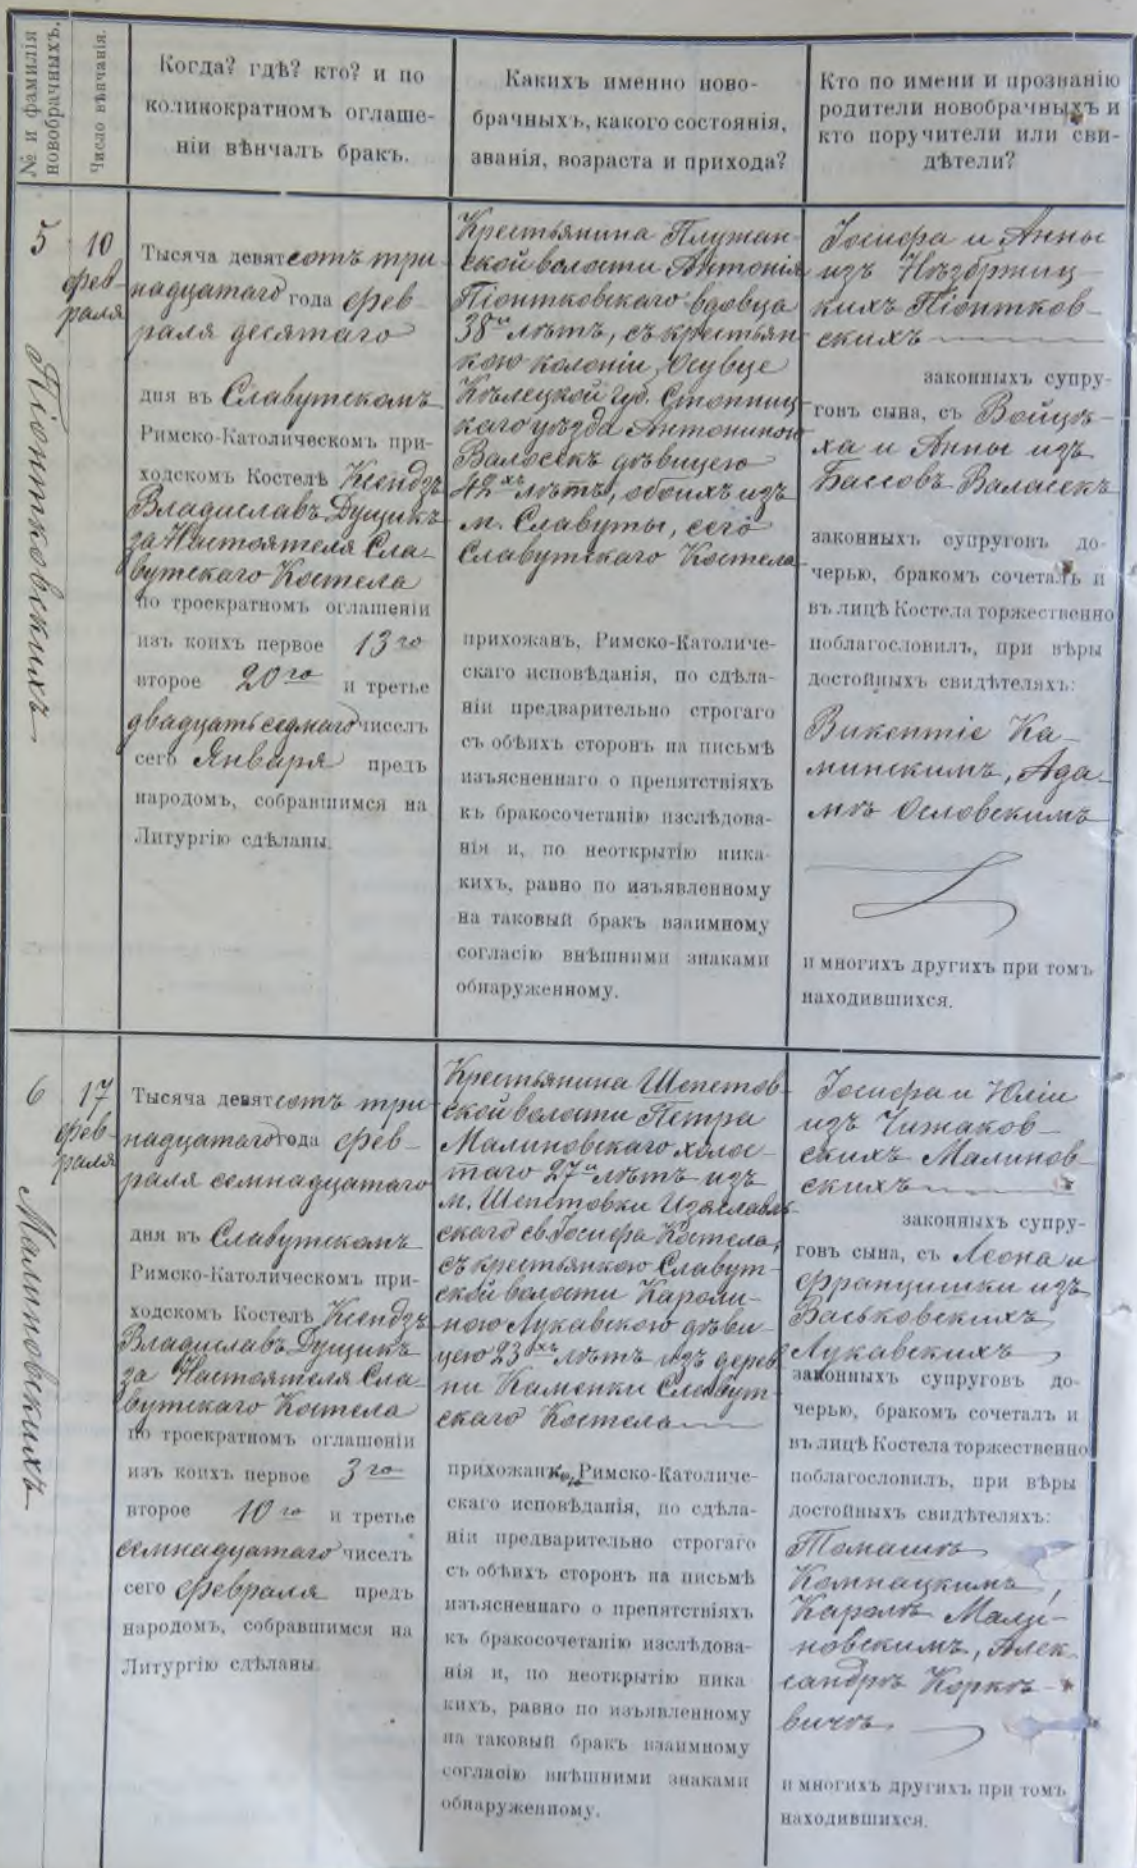 № и фамилія
новобрачныхъ.
Число вѣнчанія.
Когда? гдѣ? кто? и по
коликократномъ оглаше-
ніи вѣнчалъ бракъ.
Какихъ именно ново-
брачныхъ, какого состоянія,
званія, возраста и прихода?
Кто по имени и прозванію
родители новобрачныхъ и
кто поручители или сви-
дѣтели?
5
Піонтковскихъ
10
фев-
раля
Тысяча девятсотъ три-
надцатаго года фев-
раля десятаго
дня въ Славутскомъ
Римско-Католическомъ при-
ходскомъ Костелѣ Ксендзъ
Владиславъ Дущикъ
за Настоятеля Сла-
вутскаго Костела
по троекратномъ оглашеніи
изъ коихъ первое 13го
второе 20го и третье
двадцать седмаго чиселъ
сего Января предъ
народомъ, собравшимся на
Литургію сдѣланы.
Крестьянина Плужан-
ской волости Антонія
Піонтковскаго вдовца
38и лѣтъ, съ крестьян-
кою колоніи Осувце
Кѣлецкой губ. Стопниц-
каго уѣзда Антониною
Валосекъ дѣвицею
42хъ лѣтъ, обоихъ изъ
м. Славуты, сего
Славутскаго Костела
прихожанъ, Римско-Католиче-
скаго исповѣданія, по сдѣла-
ніи предварительно строгаго
съ обѣихъ сторонъ на письмѣ
изъясненнаго о препятствіяхъ
къ бракосочетанію изслѣдова-
нія и, по неоткрытію ника-
кихъ, равно по изъявленному
на таковый бракъ взаимному
согласію внѣшними знаками
обнаруженному.
Іосифа и Анны
изъ Нѣзбржиц-
кихъ Піонтков-
скихъ
законныхъ супру-
говъ сына, съ Войцѣ-
ха и Анны изъ
Бассовъ Валасекъ
законныхъ супруговъ до-
черью, бракомъ сочеталъ и
въ лицѣ Костела торжественно
поблагословилъ, при вѣры
достойныхъ свидѣтеляхъ:
Викентіе Ка-
минскимъ, Ада-
мѣ Ословскимъ
и многихъ другихъ при томъ
находившихся.
6
Малиновскихъ
17
фев-
раля
Тысяча девятсотъ три-
надцатаго года фев-
раля семнадцатаго
дня въ Славутскомъ
Римско-Католическомъ при-
ходскомъ Костелѣ Ксендзъ
Владиславъ Дущикъ
за Настоятеля Сла-
вутскаго Костела
по троекратномъ оглашеніи
изъ коихъ первое 3го
второе 10го и третье
семнадцатаго чиселъ
сего февраля предъ
народомъ, собравшимся на
Литургію сдѣланы.
Крестьянина Шепетов-
ской волости Петра
Малиновскаго холос-
таго 27и лѣтъ изъ
м. Шепетовки Изяслав-
скаго св. Іосифа Костела,
съ крестьянкою Славут-
ской волости Кароли-
ною Лукавскою дѣви-
цею 23хъ лѣтъ изъ дерев-
ни Каменки Славут-
скаго Костела
прихожанкою Римско-Католиче-
скаго исповѣданія, по сдѣла-
ніи предварительно строгаго
съ обѣихъ сторонъ на письмѣ
изъясненнаго о препятствіяхъ
къ бракосочетанію изслѣдова-
нія и, по неоткрытію ника
кихъ, равно по изъявленному
на таковый бракъ взаимному
согласію внѣшними знаками
обнаруженному.
Іосифа и Юліи
изъ Чижаков-
скихъ Малинов-
скихъ
законныхъ супру-
говъ сына, съ Леона и
Францишки изъ
Васьковскихъ
Лукавскихъ
законныхъ супруговъ до-
черью, бракомъ сочеталъ и
въ лицѣ Костела торжественно
поблагословилъ, при вѣры
достойныхъ свидѣтеляхъ:
Томашѣ
Компацкимъ,
Каролѣ Мали-
новскимъ, Алек-
сандрѣ Коркѣ-
вичѣ
и многихъ другихъ при томъ
находившихся.